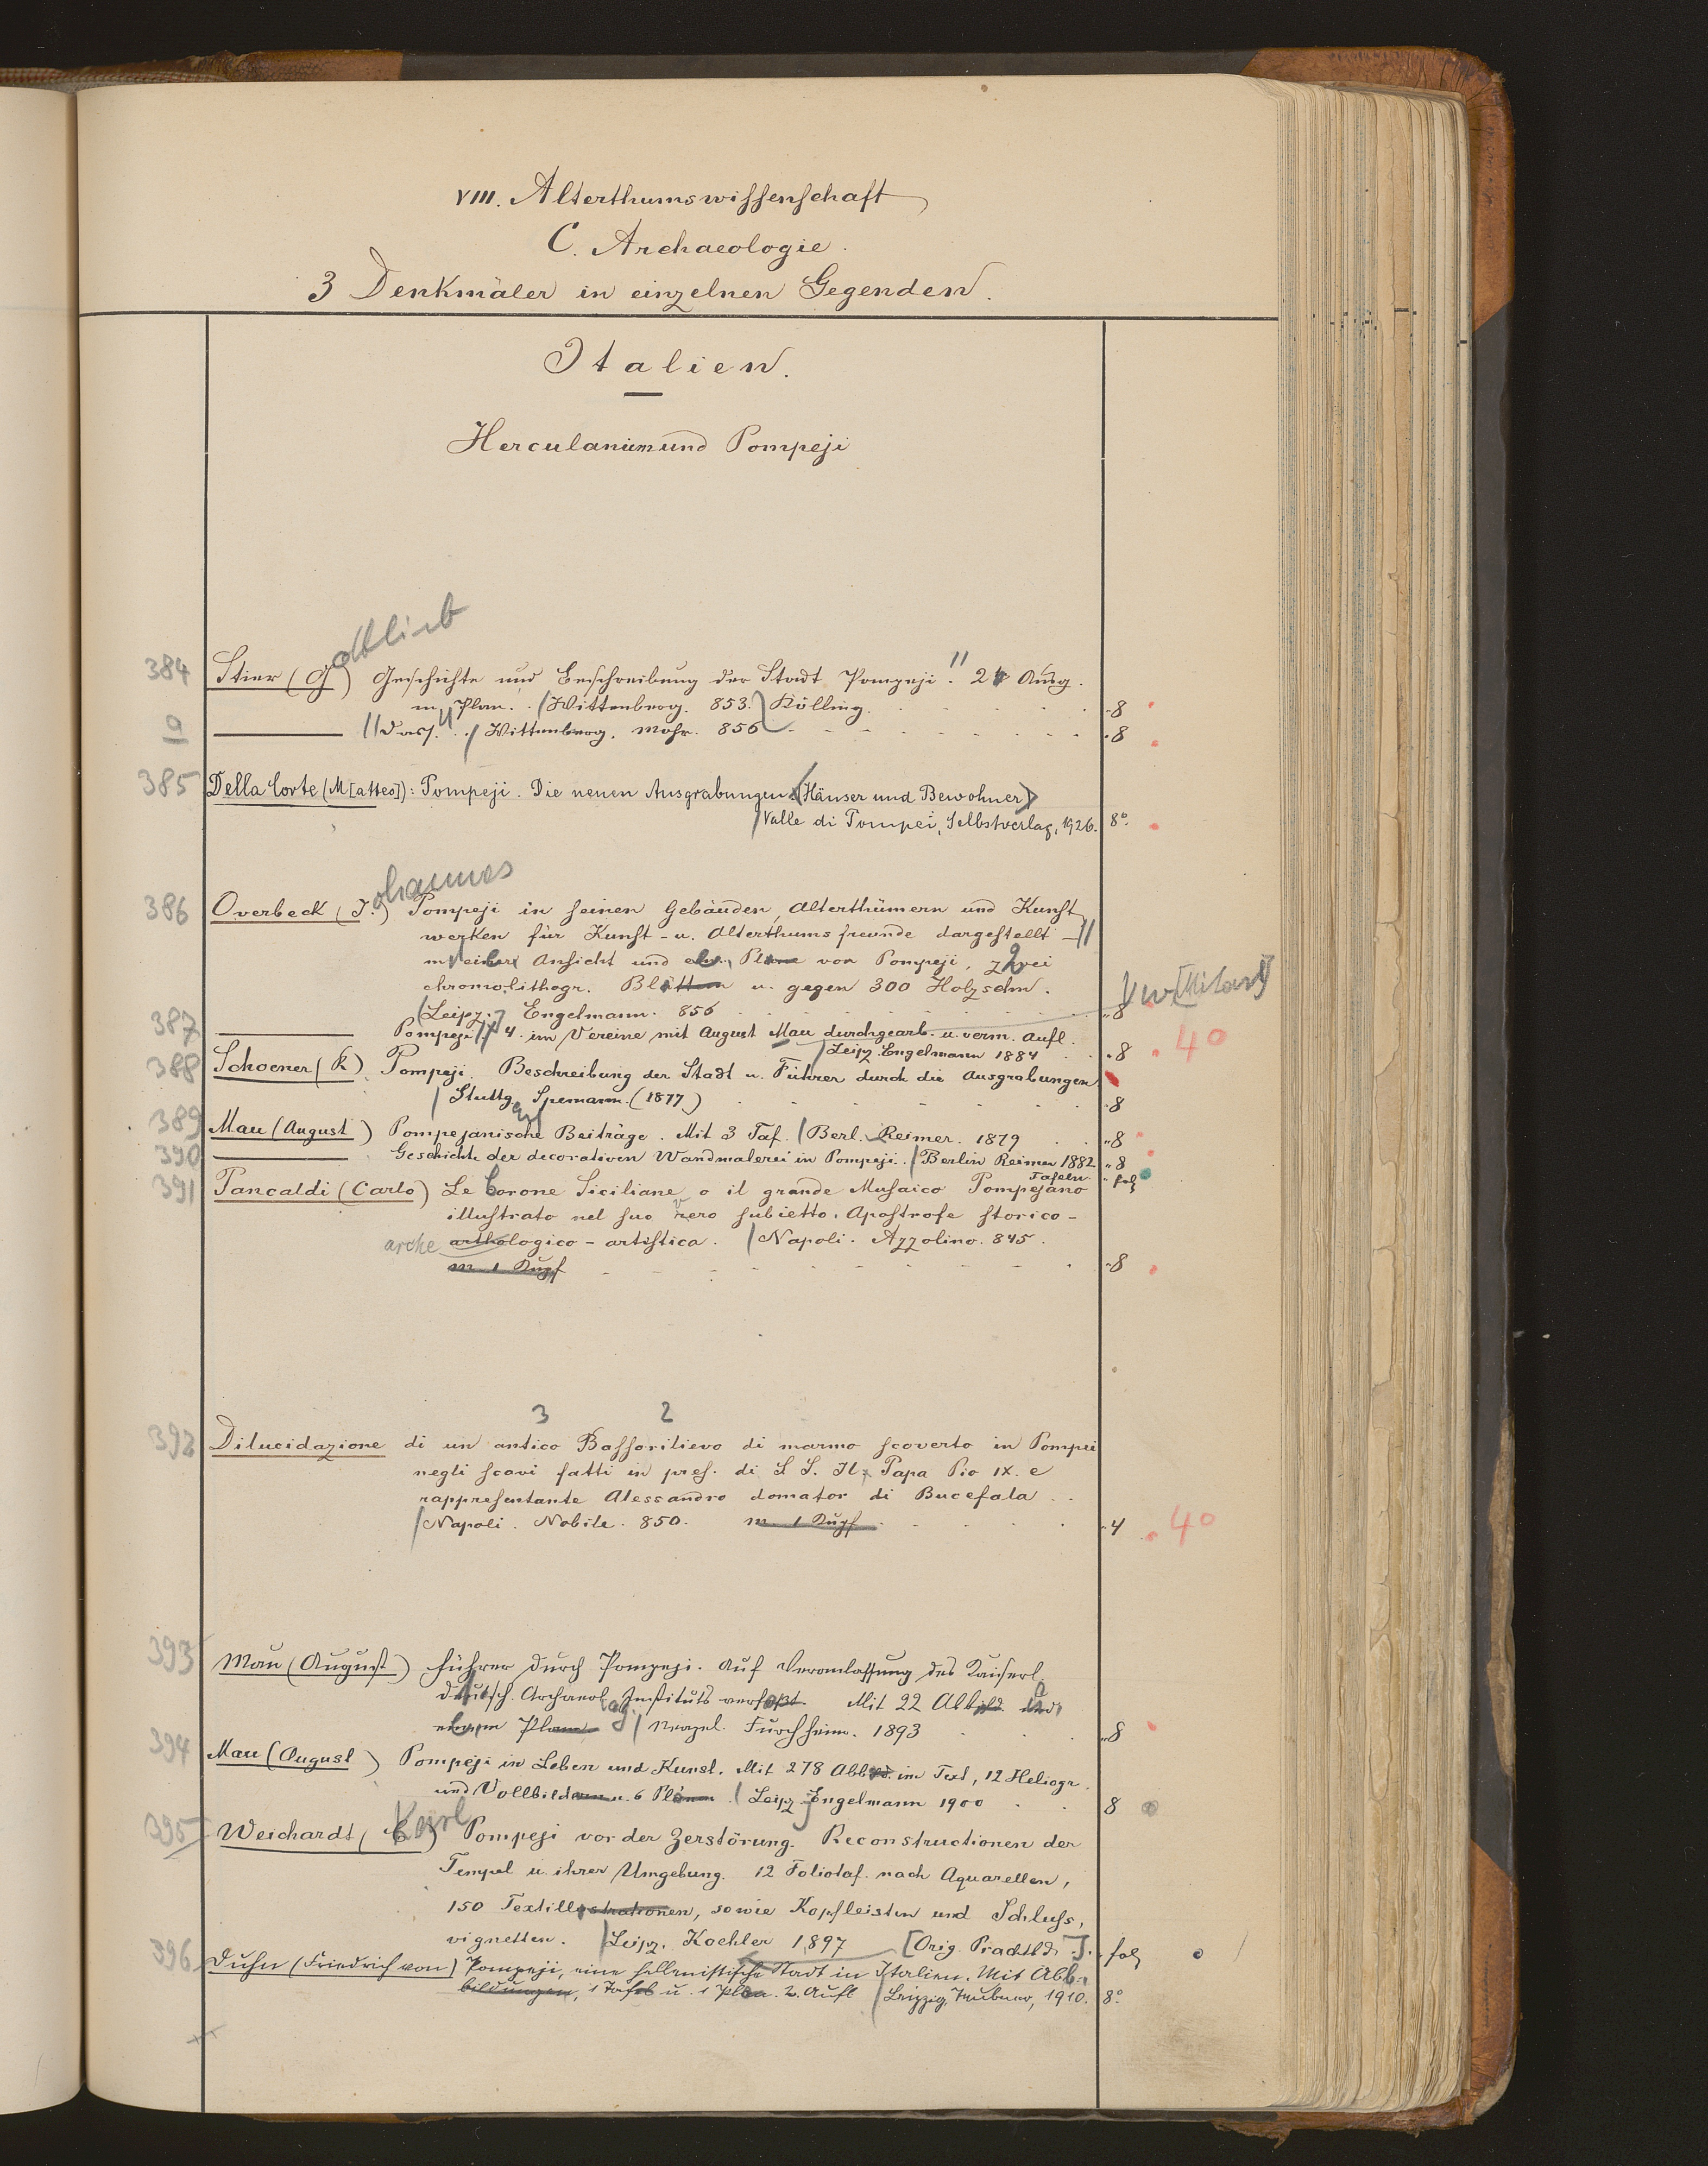 VIII. Alterthumswissenschaft
C. Archaeologie.
3 Denkmäler in einzelnen Gegenden.
Italien.
Herculanum und Pompeji
384 Stier (Gottlieb) Geschichte und Beschreibung der Stadt Pompeji. 2 Ausg.
m. Plan. Wittenberg. 853. Kölling. 8
a dass. Wittenberg. Mohr. 856 8
385 Della Corte (M[atteo]): Pompeji. Die neuen Ausgrabungen (Häuser und Bewohner)
Valle di Pompei, Selbstverlag, 1926. 8°.
386 Overbeck (Johannes) Pompeji in seinen Gebäuden, Alterthümern und Kunst
werken für Kunst- u. Alterthumsfreunde dargestellt
m einer Ansicht und Plane von Pompeji, zwei
chromolithogr. Blättern u. gegen 300 Holzschn.
Leipz. Engelmann. 856 8
387 Pompeji 4. im Vereine mit August Mau durchgearb. u. verm. Aufl.
Leipz. Engelmann 1884 8 40
388 Schoener (R) Pompeji. Beschreibung der Stadt u. Führer durch die Ausgrabungen
Stuttg. Spemann. (1877) 8
389 Mau (August) Pompejanische Beiträge. Mit 3 Taf. Berl. Reimer. 1879 8
390 Geschichte der decorativen Wandmalerei in Pompeji. Berlin Reimer 1882 8
Tafeln fol
391 Pancaldi (Carlo) Le Corone Siciliane o il grande Musaico Pompejano
illustrato nel suo vero subietto. Apostrofe storico-
arche arthologico-artistica. Napoli. Azzolino. 845.
m. 1 Kupf 8
3 2
392 Dilucidazione di un antico Bassorilievo di marmo scoverto in Pompei
negli scavi fatti in pres. di S S. Il Papa Pio IX. e
rappresentante Alessandro domator di Bucefala
Napoli. Nobile. 850. m. 1 Kupf 4 40
393 Mau (August) Führer durch Pompeji. Auf Veranlassung des Kaiserl.
deutsch. Archaeol. Instituts verfasst. Mit 22 Abbild und
Plane Neapel. Furchheim. 1893 8
394 Mau (August) Pompeji in Leben und Kunst. Mit 278 Abbild. im Text, 12 Heliogr.
und Vollbildern u. 6 Plänen. Leipz Engelmann 1900 8
395 Weichardt (Karl) Pompeji vor der Zerstörung. Reconstructionen der
Tempel u. ihrer Umgebung. 12 Foliotaf. nach Aquarellen,
150 Textillustrationen, sowie Kopfleisten und Schluss,
vignetten. Leipz. Koehler 1897 [Orig. Prachtbd.]. fol
396 Duhn (Friedrich von) Pompeji, eine hellenistische Stadt in Italien. Mit Abb.
bildungen, 1 Tafel u. 1 Plan. 2. Aufl Leipzig, Teubner, 1910. 8°.